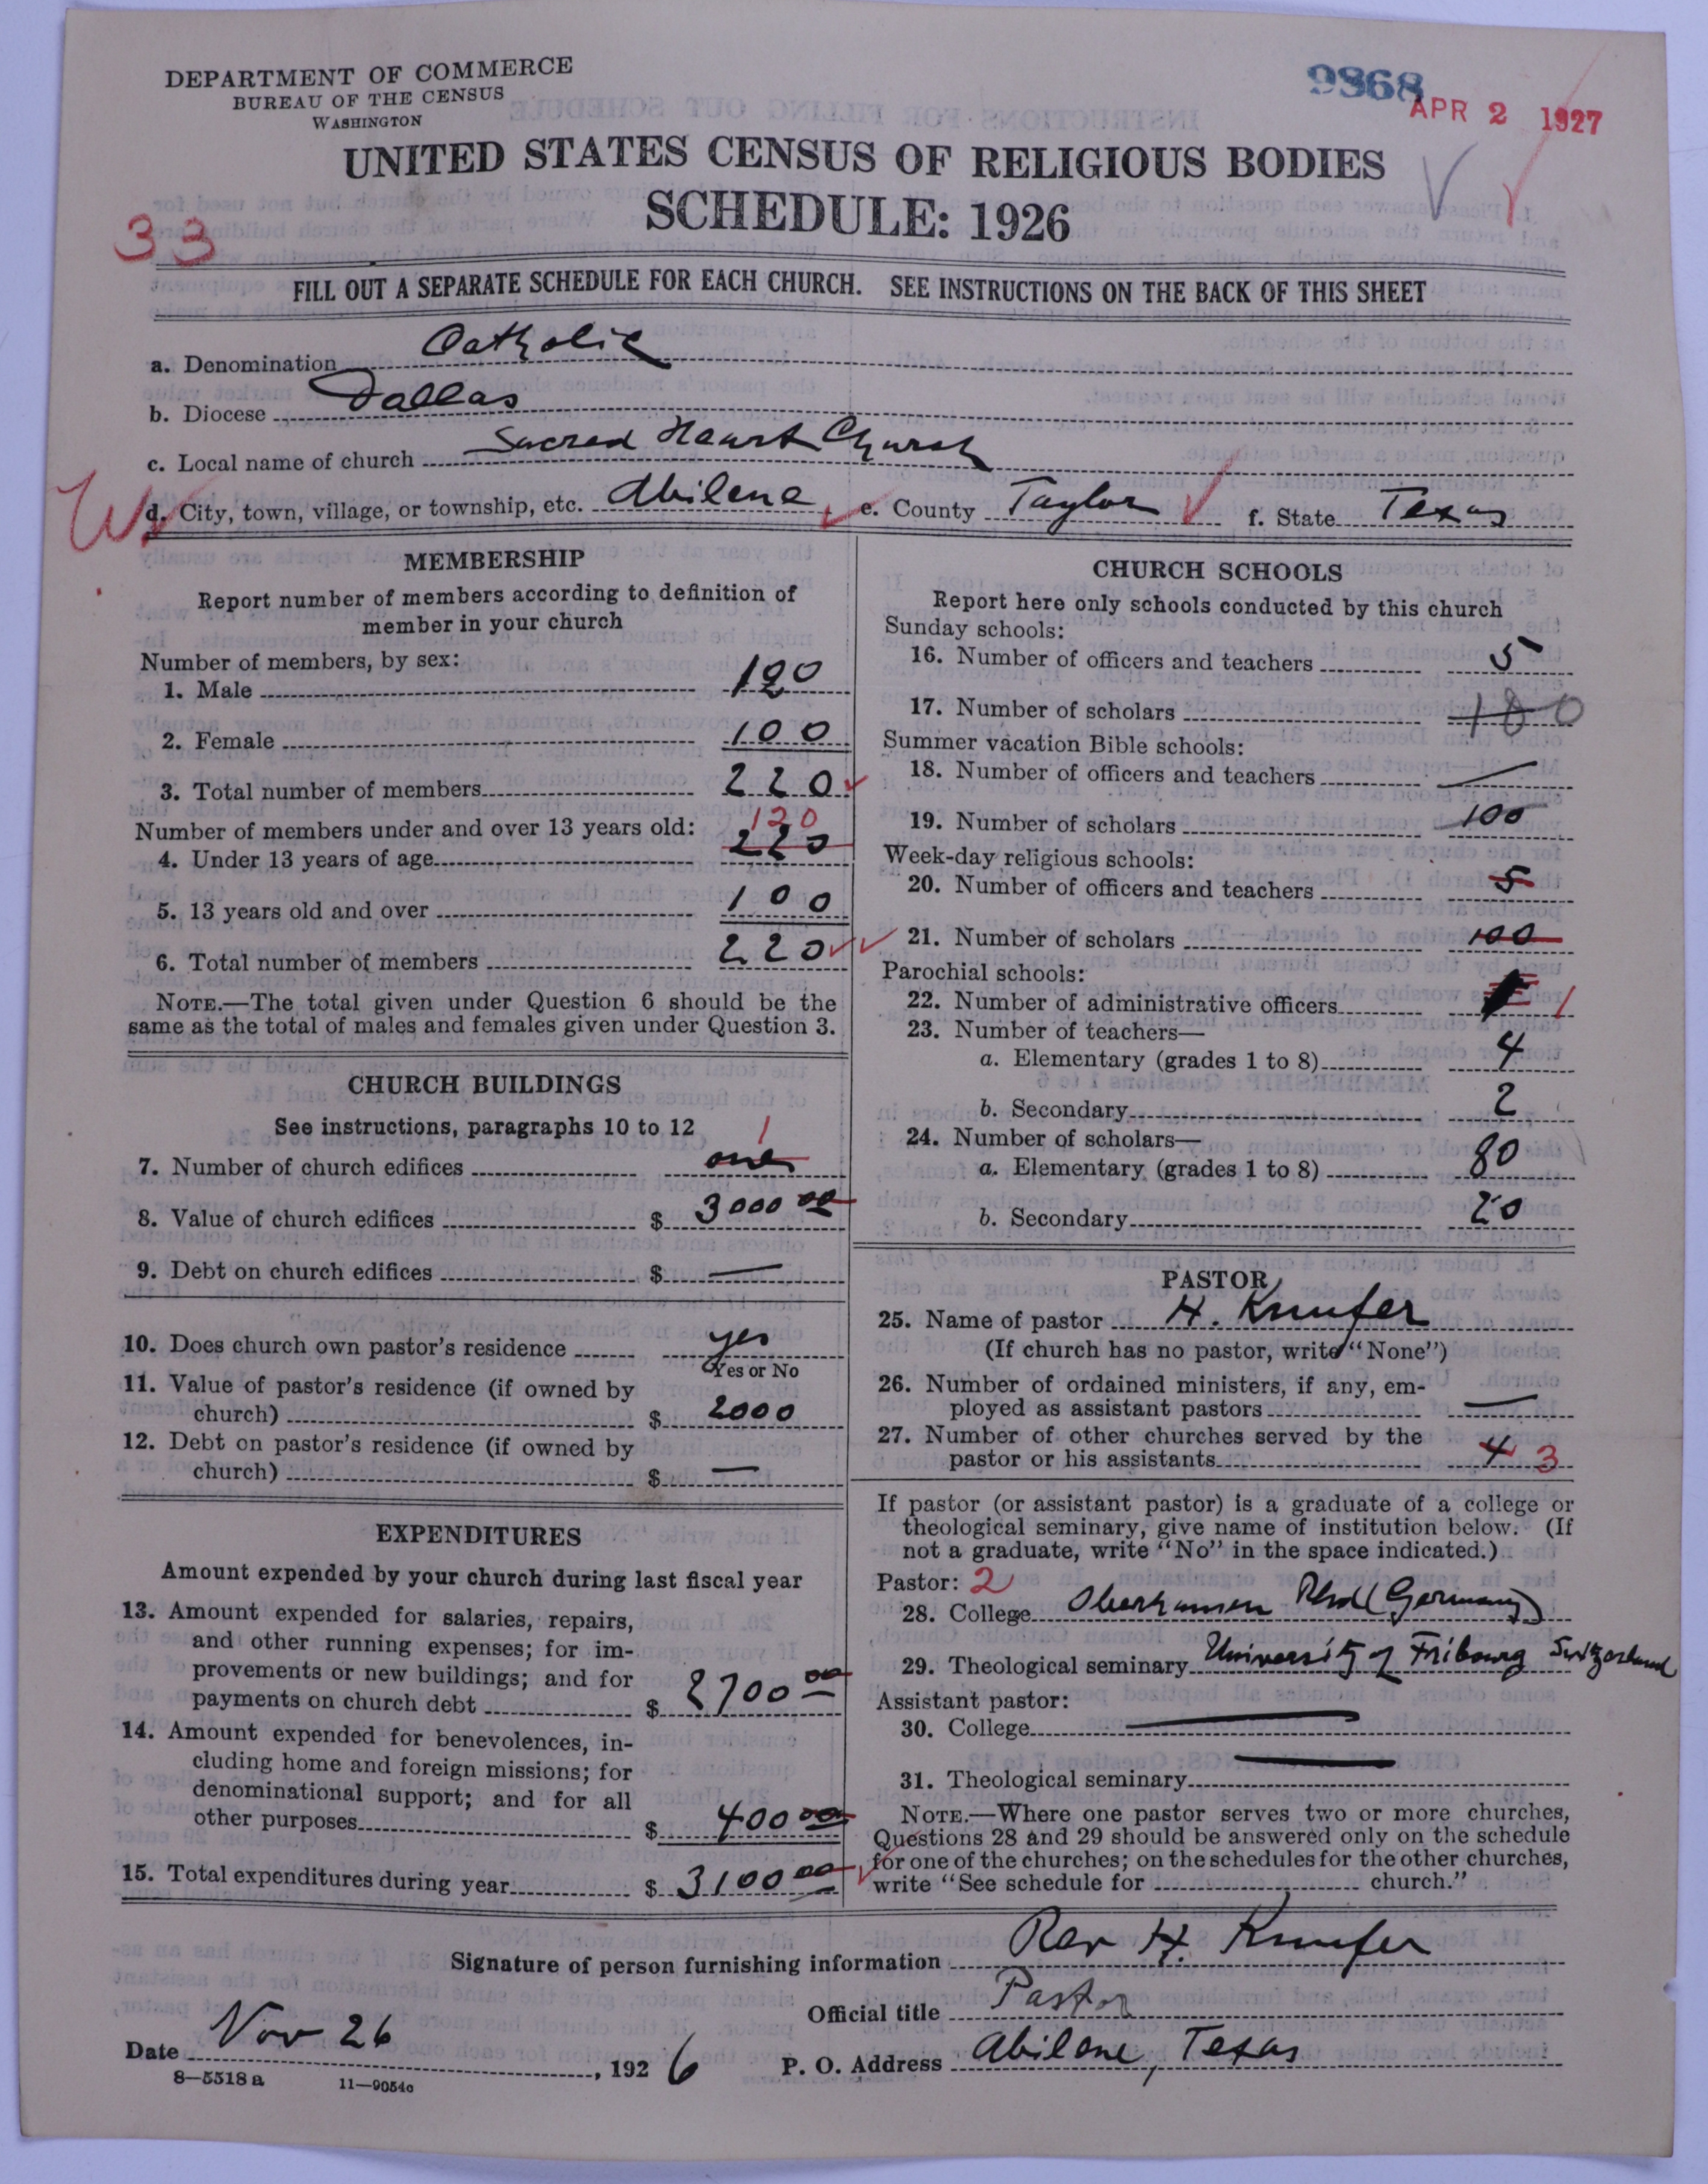 DEPARTMENT OF COMMERCE
BUREAU OF THE CENSUS
WASHINGTON
9868
APR 2 1927
UNITED STATES CENSUS OF RELIGIOUS BODIES
SCHEDULE: 1926
33
FILL OUT A SEPARATE SCHEDULE FOR EACH CHURCH. SEE INSTRUCTIONS ON THE BACK OF THIS SHEET
a. Denomination Catholic
b. Diocese Dallas
c. Local name of church Sacred Heart Church
d. City, town, village, or township, etc. Abilene e. County Taylor f. State Texas
MEMBERSHIP
Report number of members according to definition of
member in your church
Number of members, by sex:
1. Male 120
2. Female 100
3. Total number of members 220
Number of members under and over 13 years old: 120
4. Under 13 years of age 220
5. 13 years old and over 100
6. Total number of members 220
NOTE.—The total given under Question 6 should be the
same as the total of males and females given under Question 3.
CHURCH BUILDINGS
See instructions, paragraphs 10 to 12 1
7. Number of church edifices one
8. Value of church edifices $ 3000 00
9. Debt on church edifices $ —
10. Does church own pastor's residence yes
Yes or No
11. Value of pastor's residence (if owned by
church) $ 2000
12. Debt on pastor's residence (if owned by
church) $ —
EXPENDITURES
Amount expended by your church during last fiscal year
13. Amount expended for salaries, repairs,
and other running expenses; for im-
provements or new buildings; and for
payments on church debt $ 2700 00
14. Amount expended for benevolences, in-
cluding home and foreign missions; for
denominational support; and for all
other purposes $ 400 00
15. Total expenditures during year $ 3100 00
CHURCH SCHOOLS
Report here only schools conducted by this church
Sunday schools:
16. Number of officers and teachers 5
17. Number of scholars 100
Summer vacation Bible schools:
18. Number of officers and teachers —
19. Number of scholars 100
Week-day religious schools:
20. Number of officers and teachers 5
21. Number of scholars 100
Parochial schools:
22. Number of administrative officers 1
23. Number of teachers—
a. Elementary (grades 1 to 8) 4
b. Secondary 2
24. Number of scholars—
a. Elementary (grades 1 to 8) 80
b. Secondary 20
PASTOR
25. Name of pastor H. Knufer
(If church has no pastor, write "None")
26. Number of ordained ministers, if any, em-
ployed as assistant pastors —
27. Number of other churches served by the
pastor or his assistants 4 3
If pastor (or assistant pastor) is a graduate of a college or
theological seminary, give name of institution below. (If
not a graduate, write "No" in the space indicated.)
Pastor: 2
28. College Oberhausen (Germany)
29. Theological seminary University of Fribourg Switzerland
Assistant pastor:
30. College —
31. Theological seminary —
NOTE.—Where one pastor serves two or more churches,
Questions 28 and 29 should be answered only on the schedule
for one of the churches; on the schedules for the other churches,
write "See schedule for church."
Signature of person furnishing information Rev H. Knufer
Official title Pastor
Date Nov 26, 1926 P. O. Address Abilene, Texas
8—5518 a 11—9054a